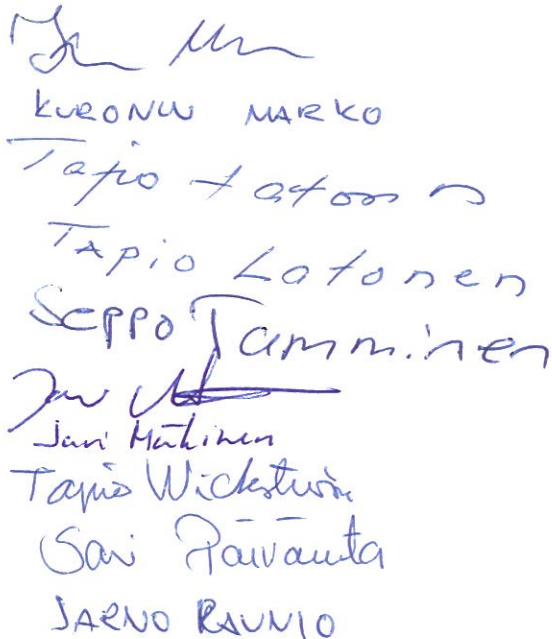 KURONEN MARKO
Tapio Latonen
TAPIO Latonen
SEPPO Tamminen
Jari Mäkinen
Tapio Wickström
Sari Päivänta
JARNO RAUNIO